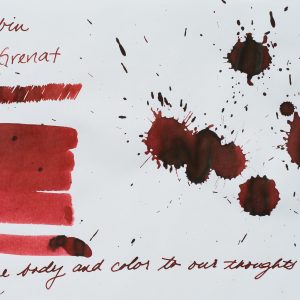 Grenat
body and color to our thoughts